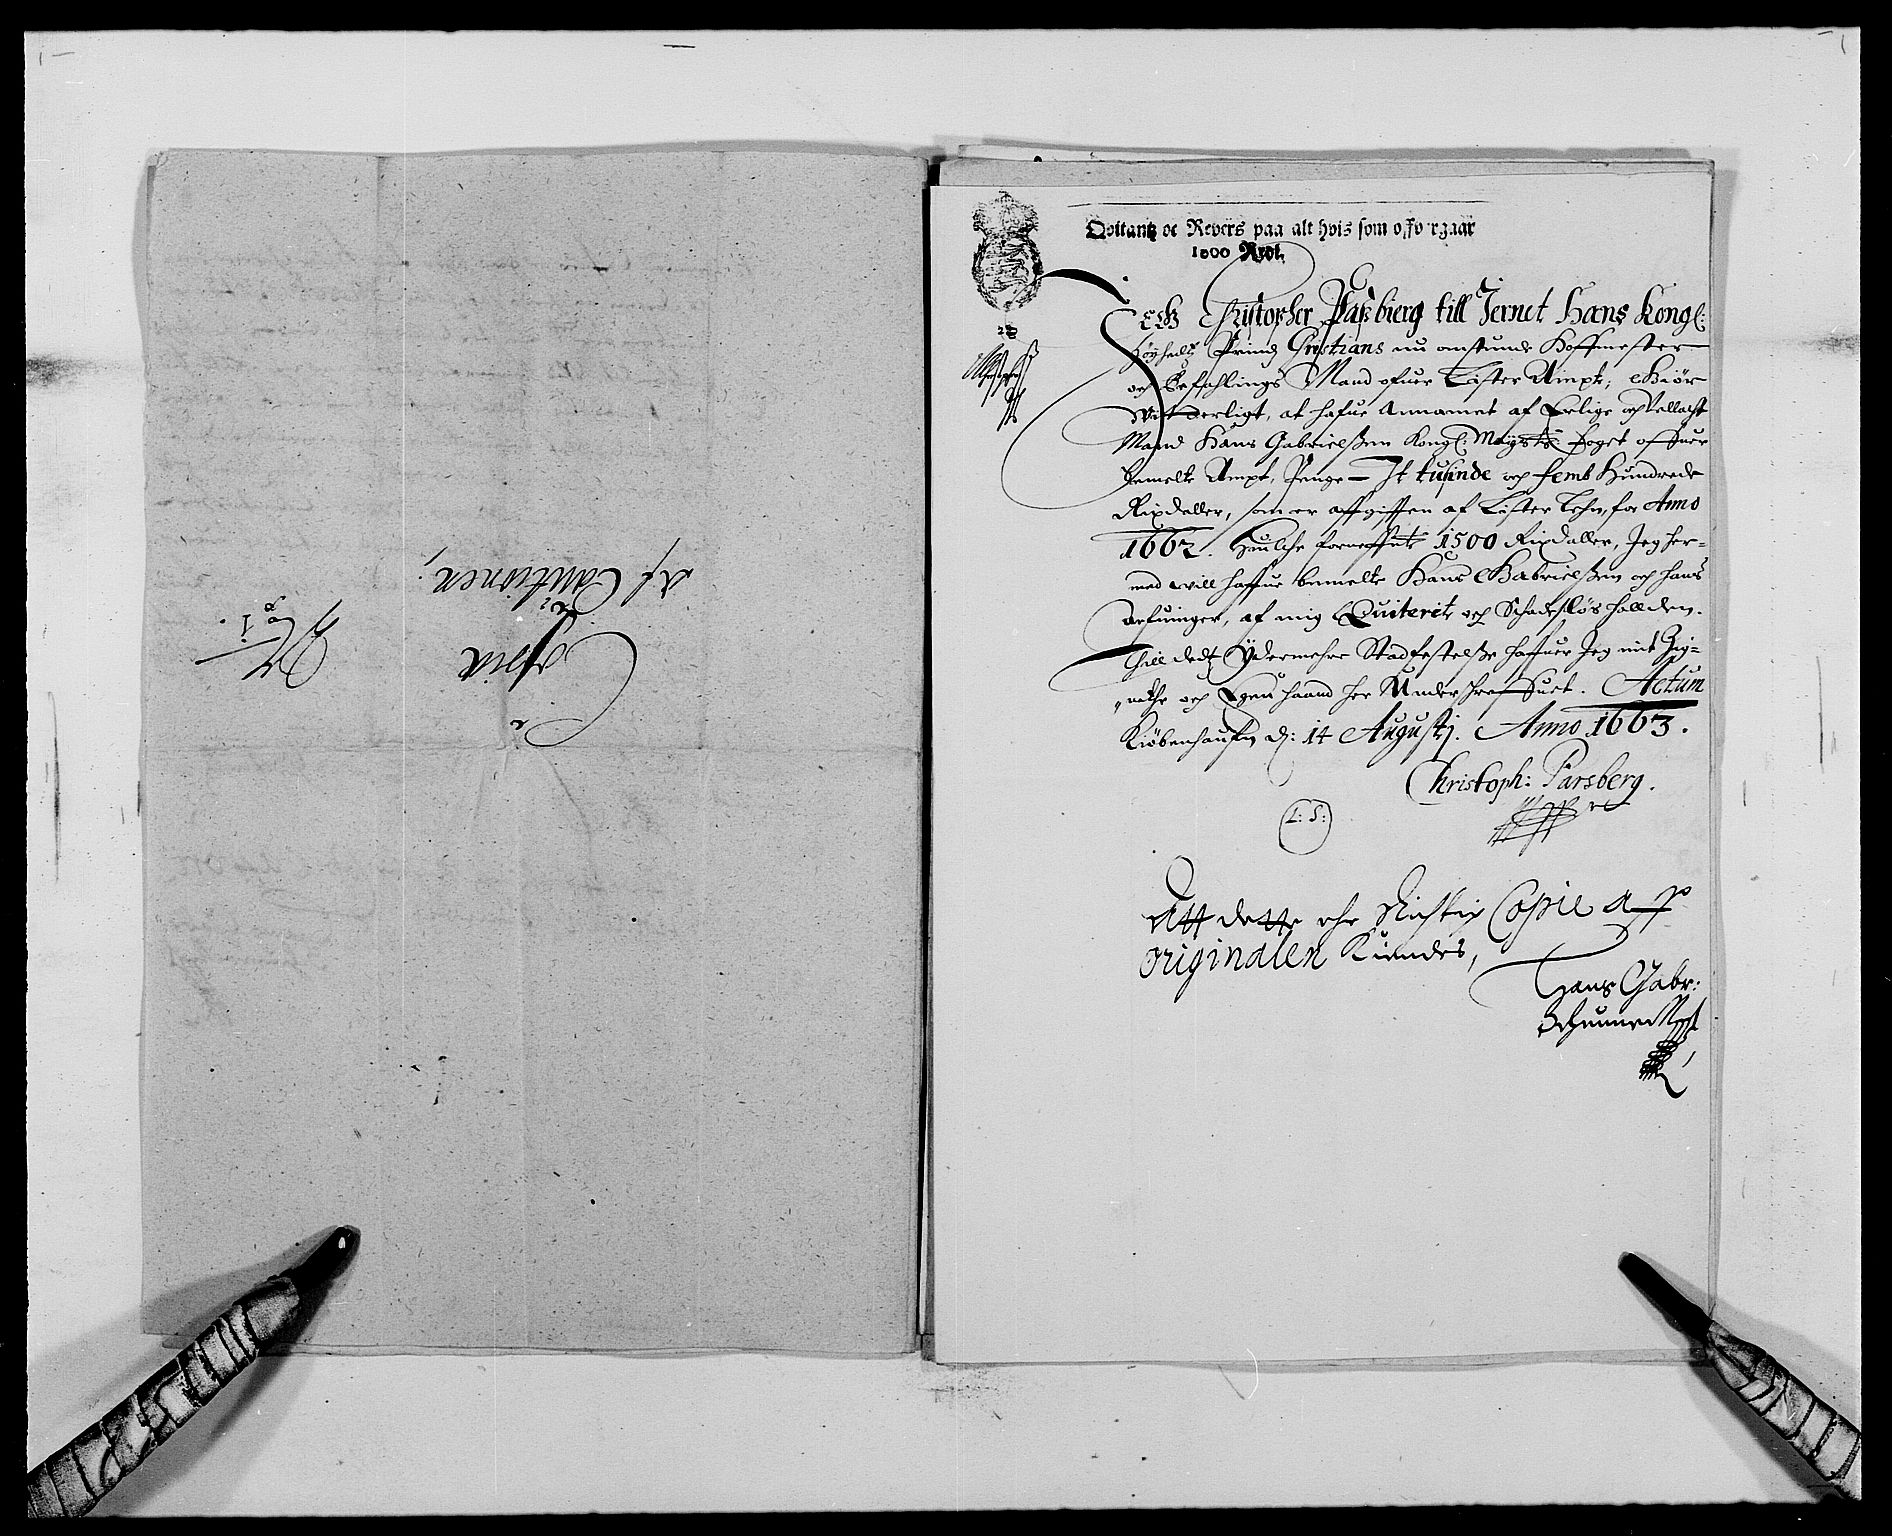 Copia
Af Cautionen,
No 1.
Qvitantz oc Revers paa alt hvis som offvergaar
1000 Redl.
JEG Christopher Parsbierg till Jernet Hans Kongl:
Høyheds Prindz Christians nu anstunde Hoffmester
och Befahlings Mand ofuer Lister Ampt, Giør
Vitterligt, at hafue Annamet af Erlige och Vellacht
Mand Hans Gabrielssen Kongl: Mayts: Foget offuer
bemelte Ampt, Penge – It tusinde och femb Hundrede
Rixdaller, som er affgifften af Lister Lehn, for Anno
1662. Huilche forneffnte 1500 Rixdaller, Jeg her-
med will haffue bemelte Hans Gabrielssen och hans
Arfuinger, af mig Quiterit och Schadesløs holden.
Thill dedtz Ydermehre Stadfestelsse haffuer Jeg mit Zig-
nethe och Egen haand her Underschreffuet. Actum
Kiöbenhaufn d: 14 Augustj. Anno 1663.
Christoph: Parsberg.
L: S:
Att dette ehr Richtig Copie aff
originalen Kiendes,
Hans Gabr: